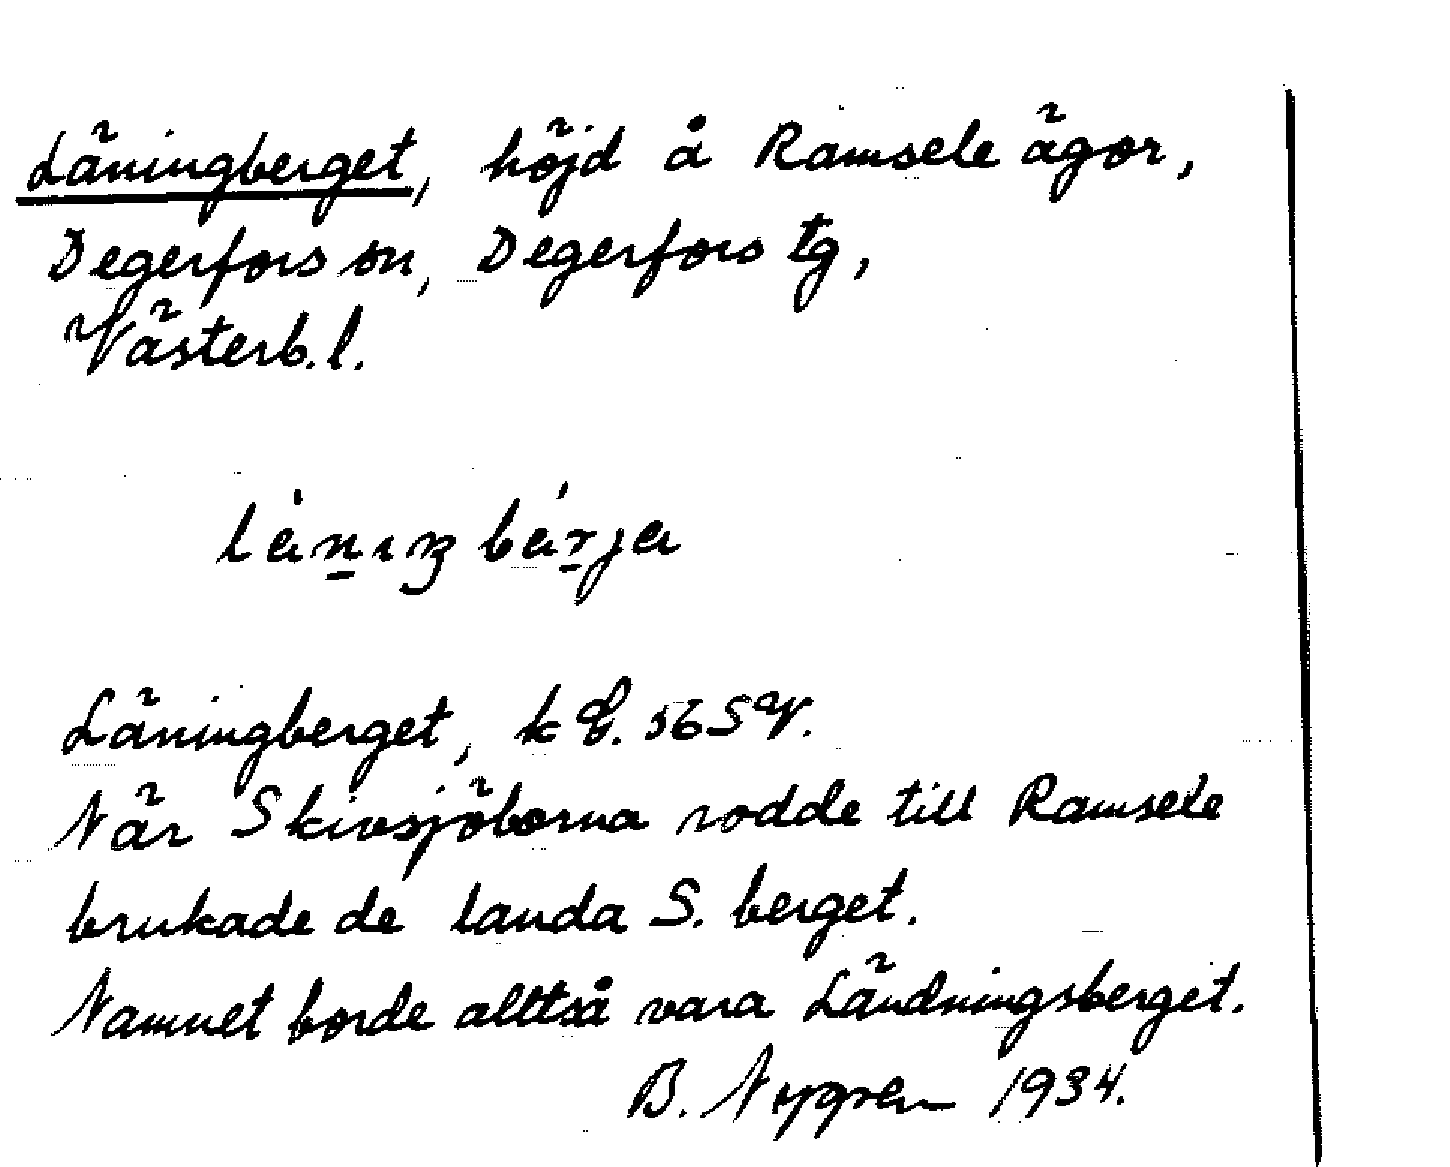 Läningberget, höjd å Ramsele ägor,
Degerfors sn, Degerfors tg,
Västerb. l.
Läningberget, k G. 56 SV.
När Skivsjöborna rodde till Ramsele
brukade de landa S. berget.
Namnet borde alltså vara Ländningsberget.
B. Nygren 1934.